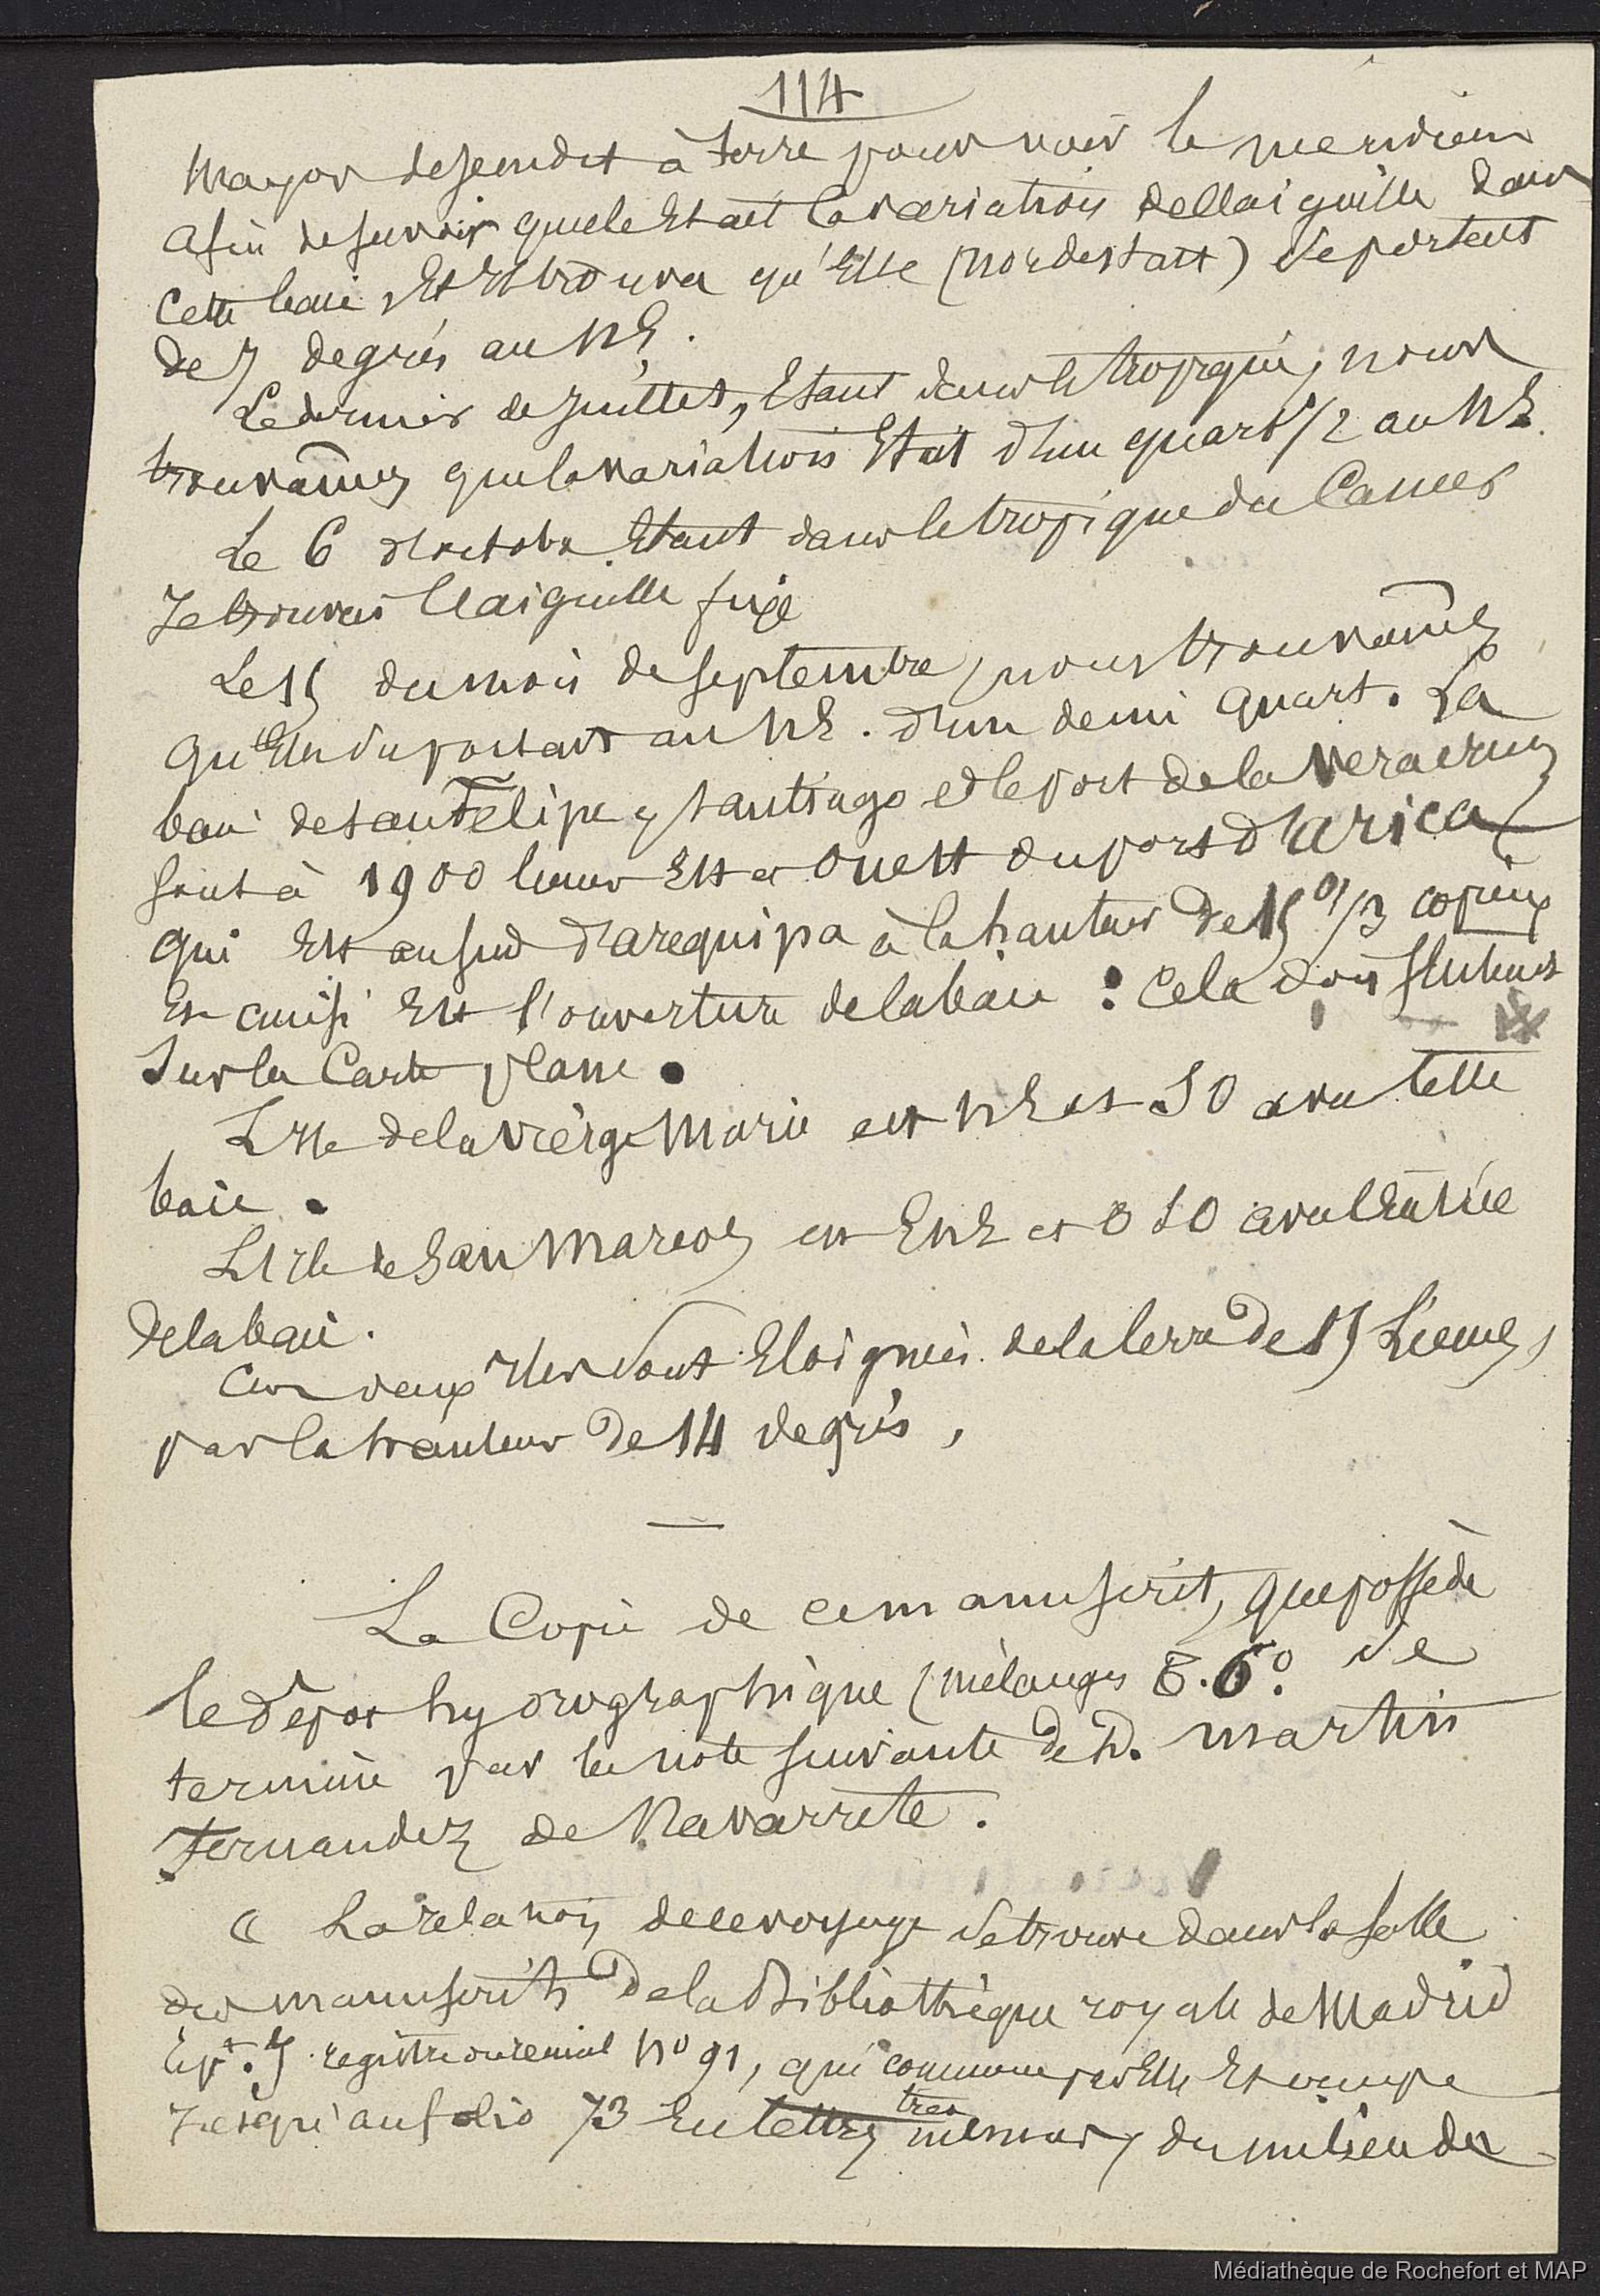 114
Mayor desendit à terre pour voir le meridien
afin de savoir quele Etait la variation dellaiguille dans
cette baie, Et Et trouva qu'Elle (nordestait) se portait
de 7 degrés au NE.
Le dernier de Juillet, Etant dans le tropique, nous
trouvâmes que la variation Etait d'un quart 1/2 au NE.
Le 6 d'octobre Etant dans le tropique du Cancer
Je trouvai l'aiguille fixe
Le 15 du mois de septembre, nous trouvâmes
qu'Elle se portait au NE. d'un demi quart. La
baie de san Felipe y santiago et le port de la Veracruz
sont à 1900 lieues Est et Ouest du port d'arica
qui Est au sud d'arequipa à la hauteur de 15° 1/3 copieux
Et ainsi Est l'ouverture de la baie : cela dois s'entend
sur la Carte plane.
L'Ile de la vièrge Marie est NE et SO avec cette
baie.
L'Isle de San Marcos est ENE et OSO avec l'Entrée
de la baie.
Ces deux Iles sont Eloignées de la terre de 15 Lieues,
par la hauteur de 14 degrés,
La Copie de ce manuscrit, que possède
le depot hydrographique (mélanges E. 6° se
termine par la note suivante de D. Martin
Fernandez de Navarrete.
« La relation de ce voyage se trouve dans la salle
des manuscrits de la Bibliothèque royale de Madrid
Ept. J registre ou recueil n° 91, qui commence par Elle Et occupe
Jusqu'au folio 73 En lettres tres menues, du milieu du
Médiathèque de Rochefort et MAP